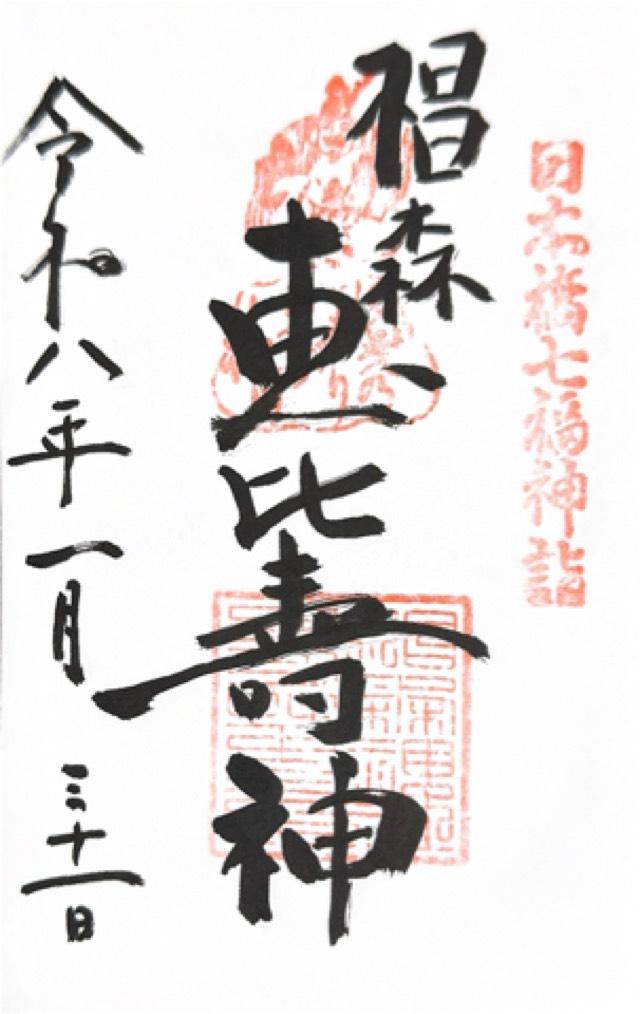 日本橋七福神詣
椙森
恵比壽神
令和八年一月三十一日